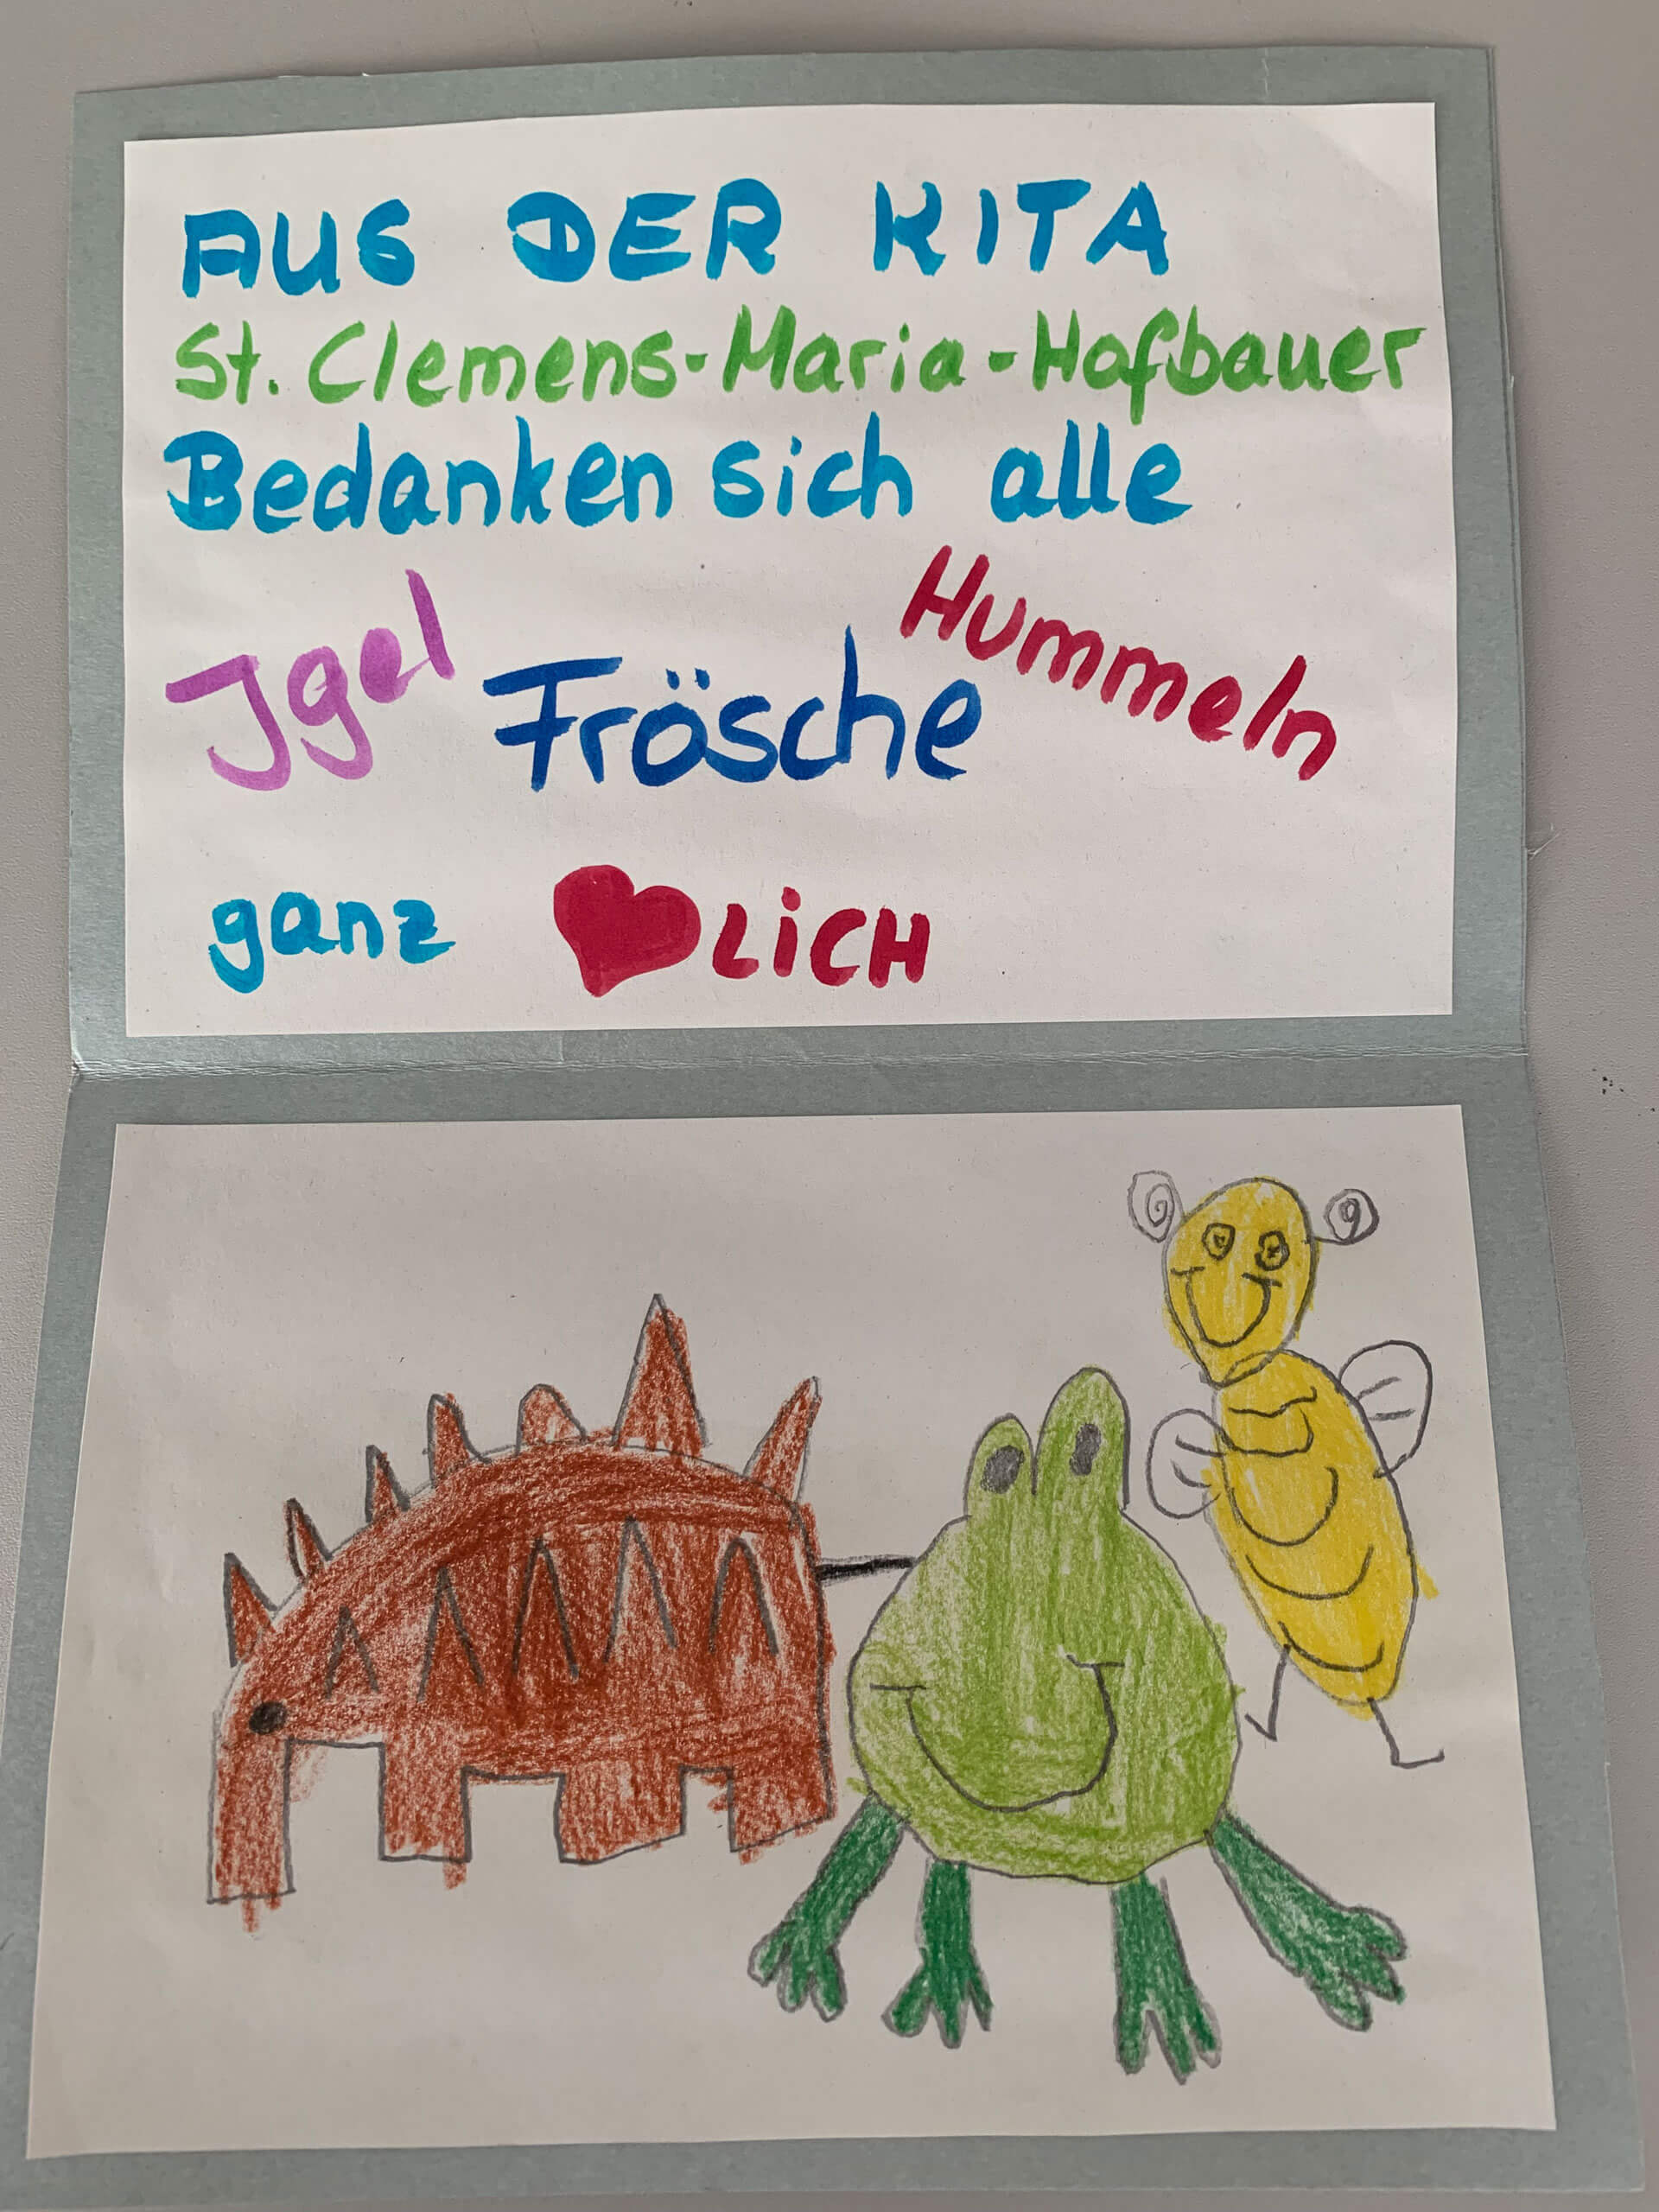 AUS DER KITA
St. Clemens-Maria-Hofbauer
Bedanken sich alle
Igel Frösche Hummeln
ganz ❤LiCH